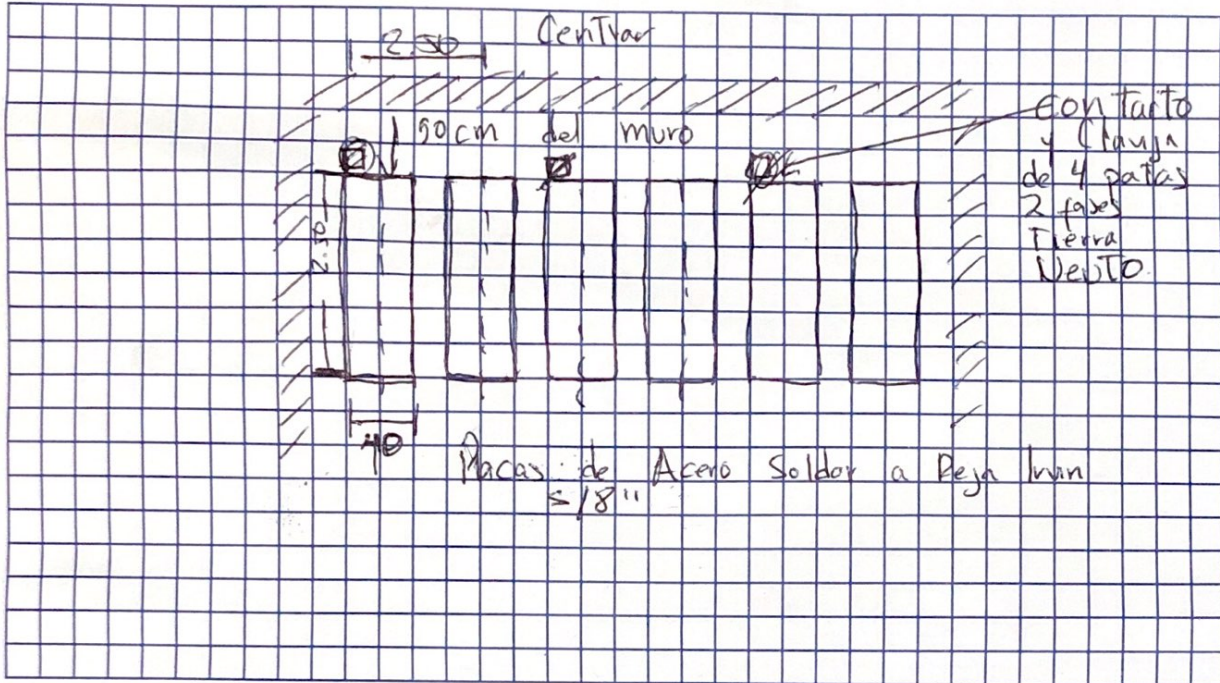 Centrar
2.50
50cm del muro
Contacto
y Clavija
de 4 patas
2 fases
Tierra
Neuto
2.50
40
Placas de Acero Soldar a
5/8"